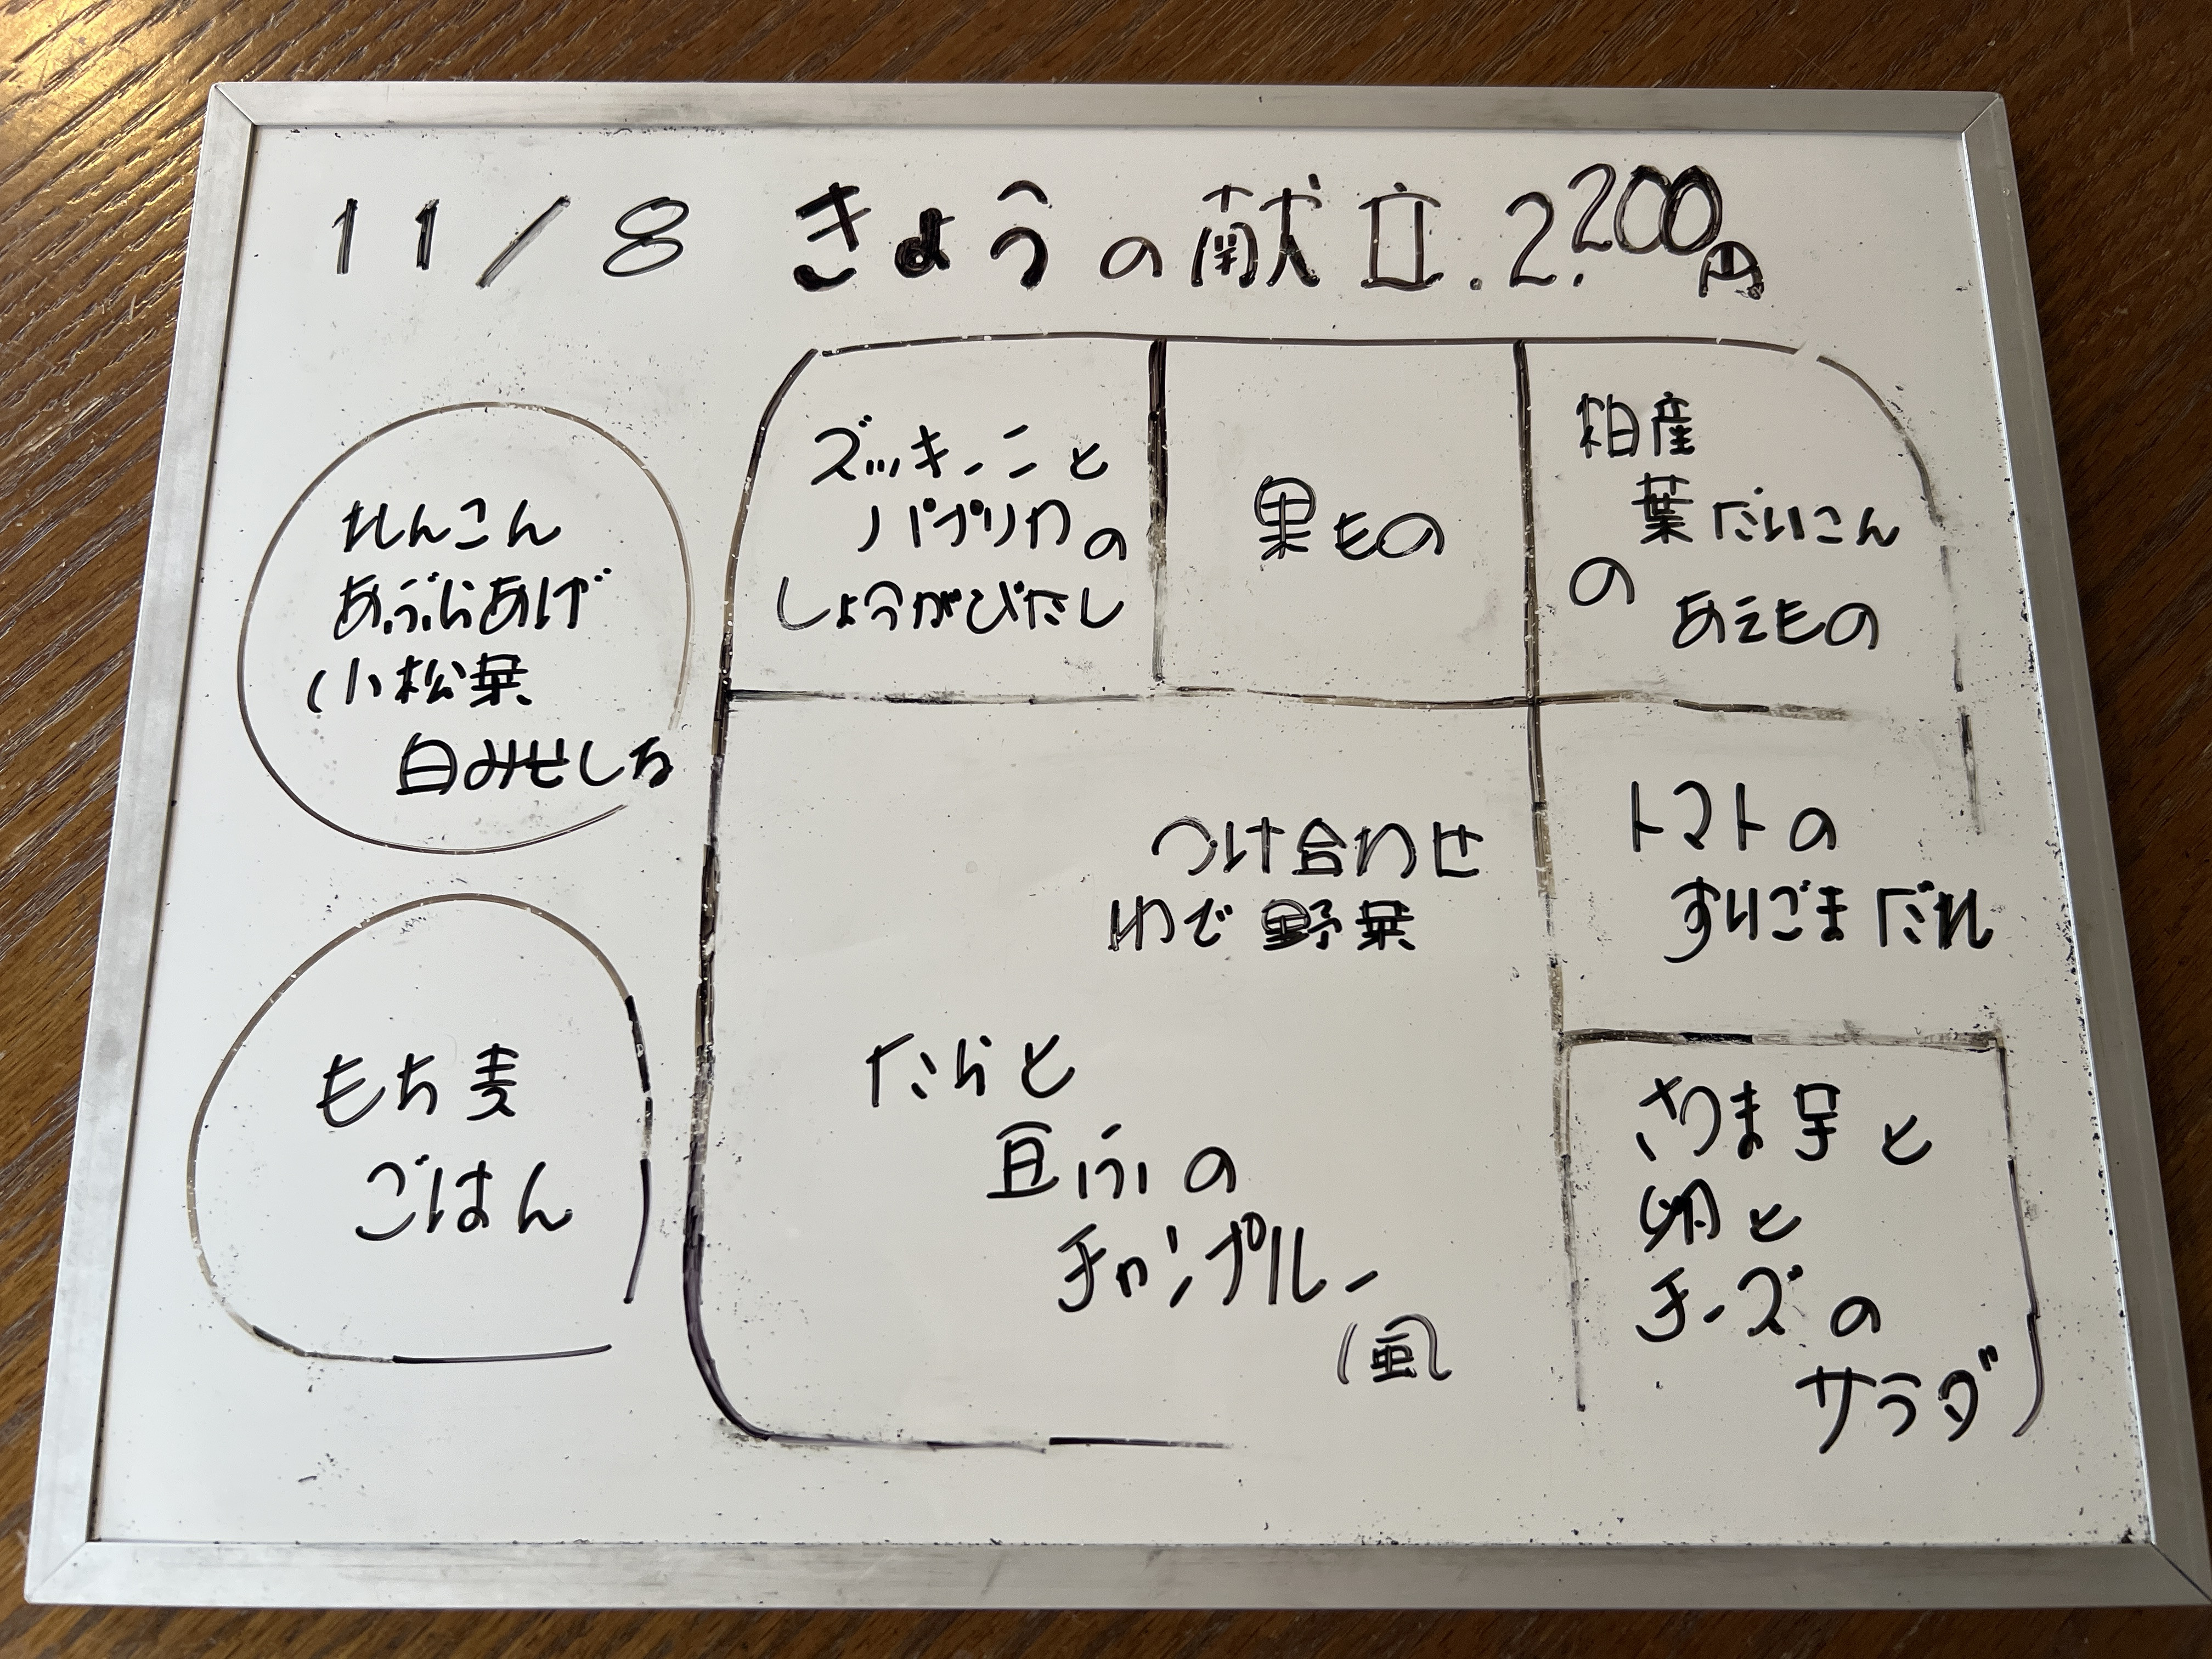 11/8 きょうの献立.2.200円
れんこん
あぶらあげ
小松菜
白みそしる
もち麦
ごはん
ズッキーニと
パプリカの
しょうがびたし
果もの
柏産
葉だいこん
の
あえもの
つけ合わせ
ゆで野菜
たらと
豆ふの
チャンプルー
風
トマトの
すりごまだれ
さつま芋と
卵と
チーズの
サラダ